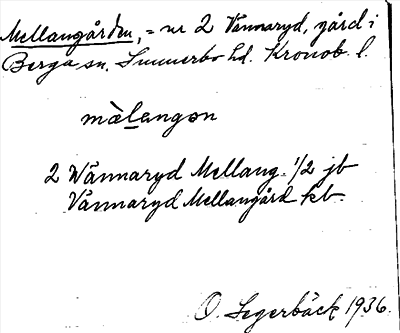 Mellangården, = nr 2 Vännaryd, gård i
Berga sn. Sunnerbo hd. Kronob. l.
màlangən
2 Wännaryd Mellang. 1/2 jb
Vännaryd Mellangård kb.
O. Segerbäck 1936.